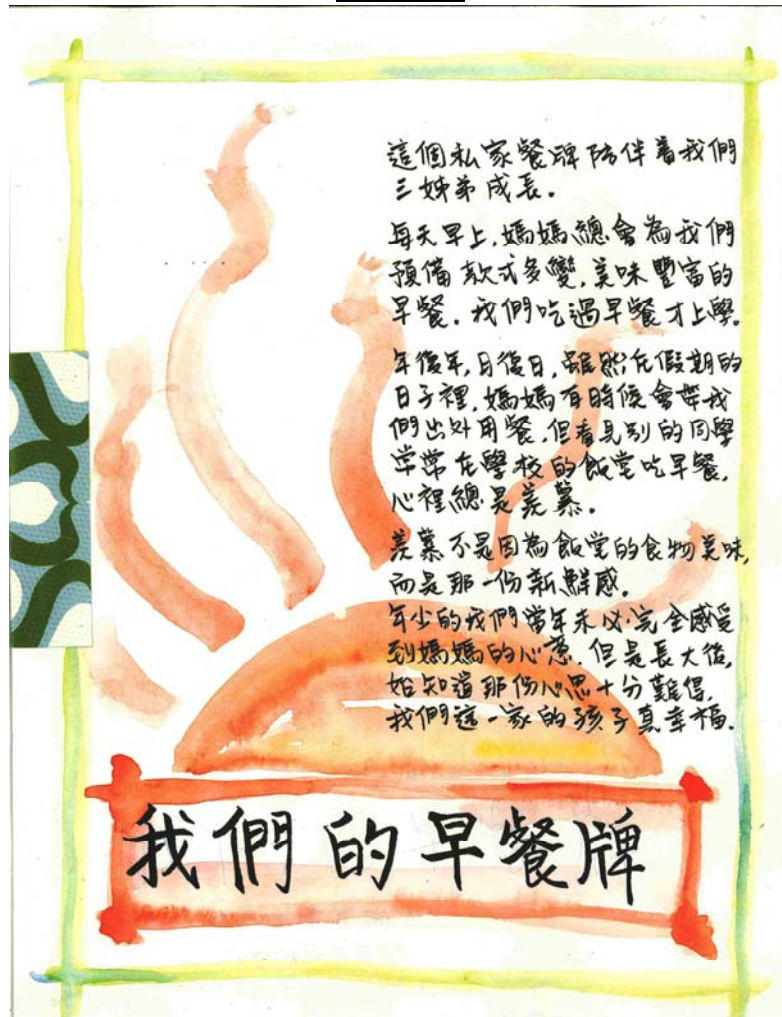 這個私家餐牌陪伴着我們
三姊弟成長.
每天早上,媽媽總會為我們
預備款式多變,美味豐富的
早餐.我們吃過早餐才上學.
年復年,日復日,雖然在假期的
日子裡,媽媽有時候會帶我
們出外用餐,但看見別的同學
常常在學校的飯堂吃早餐,
心裡總是羨慕.
羨慕不是因為飯堂的食物美味,
而是那一份新鮮感.
年少的我們當年未必完全感受
到媽媽的心意.但是長大後,
始知道那份心思十分難得.
我們這一家的孩子真幸福.
我們的早餐牌